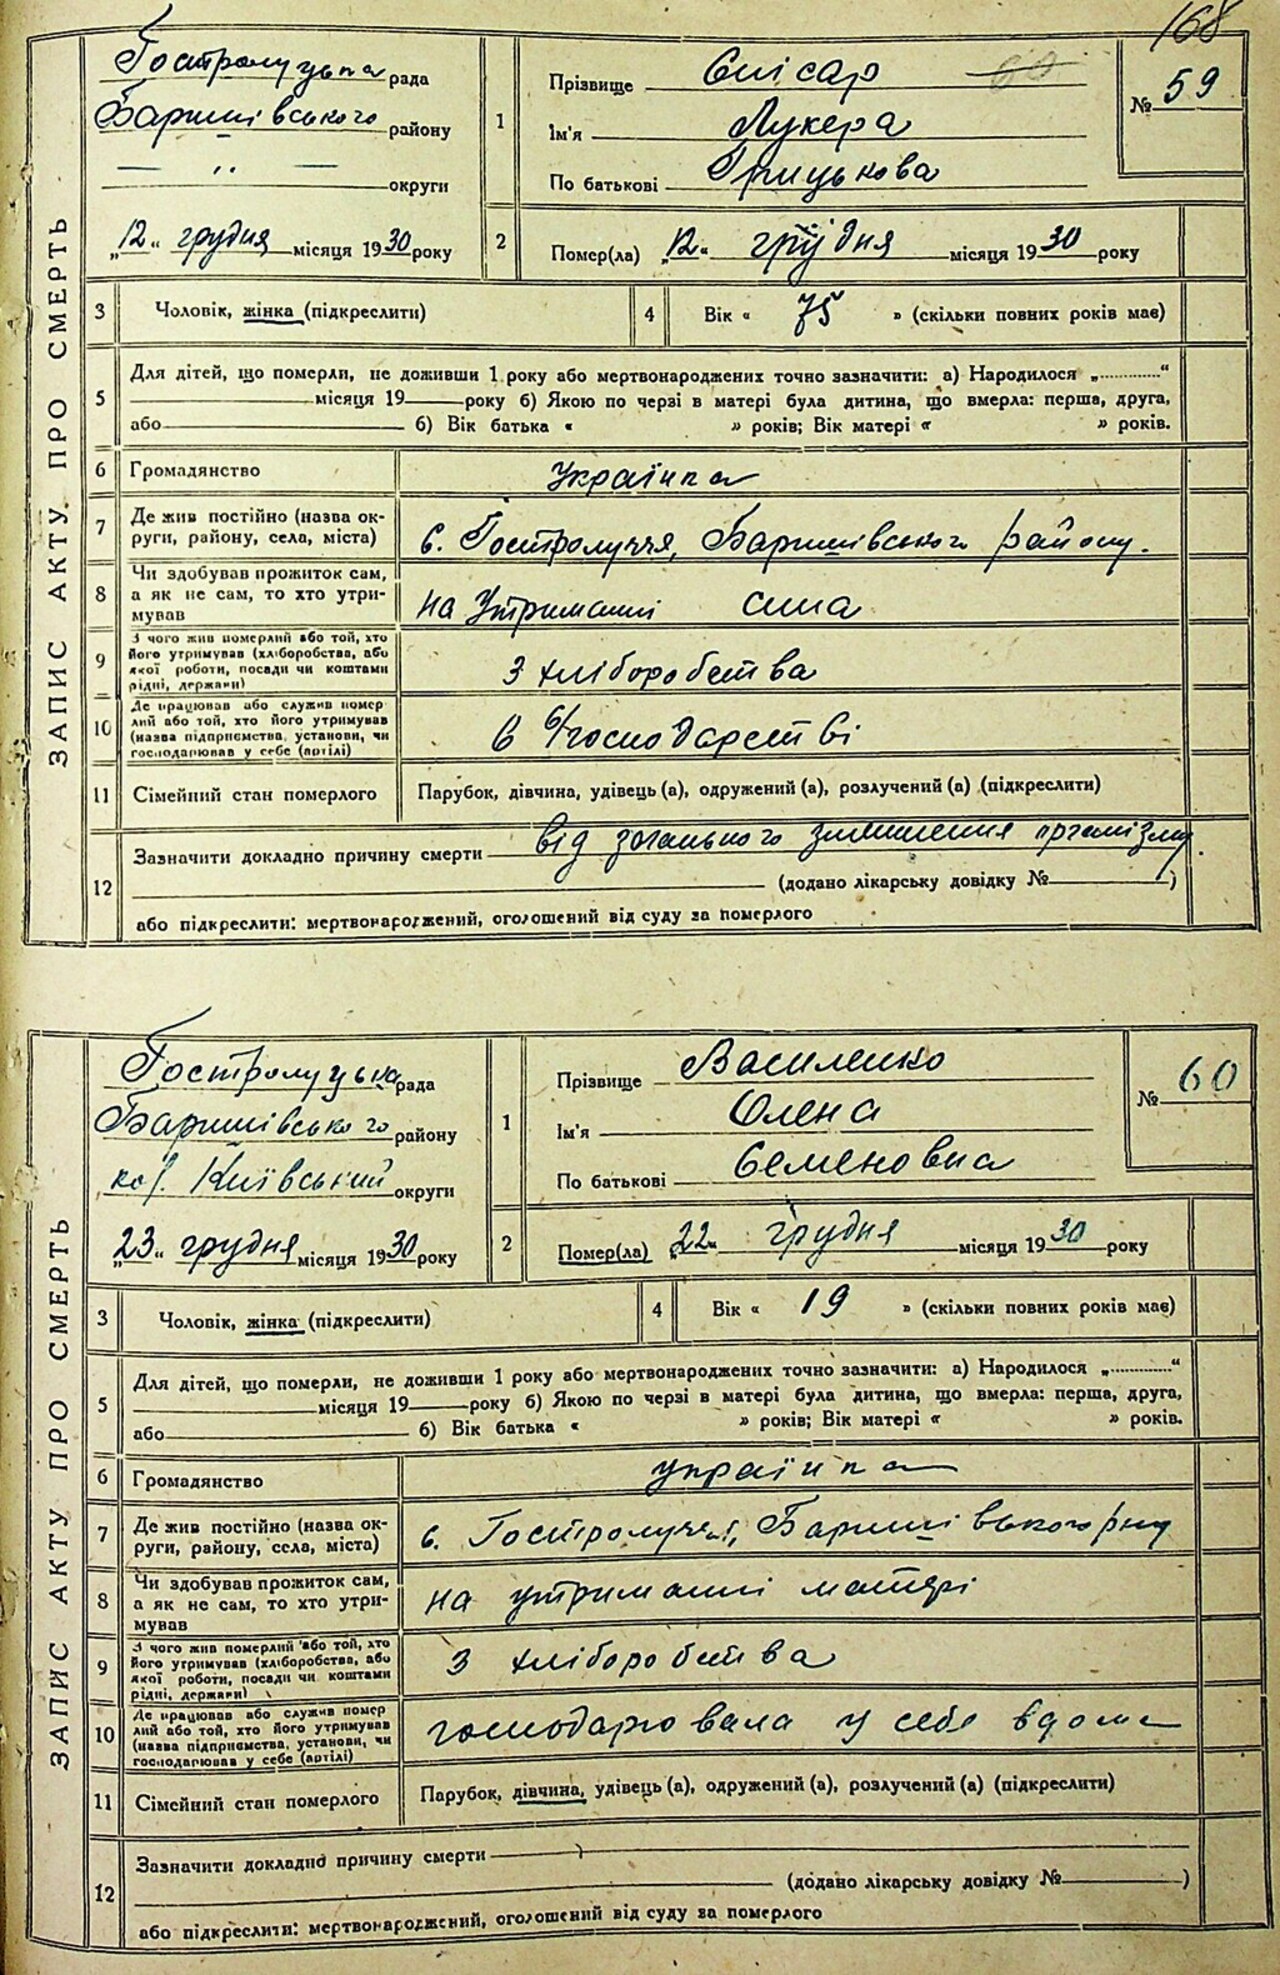 168
ЗАПИС АКТУ ПРО СМЕРТЬ
Гостролуцька рада
Баришівського району
— „ — округи
„12“ грудня місяця 1930 року
1
Прізвище Слісар
Ім'я Лукера
По батькові Грицькова
№ 59
2
Помер(ла) „12“ грудня місяця 1930 року
3 Чоловік, жінка (підкреслити)
4 Вік « 75 » (скільки повних років має)
5
Для дітей, що померли, не доживши 1 року або мертвонароджених точно зазначити: а) Народилося „............“
місяця 19 року б) Якою по черзі в матері була дитина, що вмерла: перша, друга,
або б) Вік батька « » років; Вік матері « » років.
6 Громадянство українка
7 Де жив постійно (назва ок-
руги, району, села, міста) с. Гостролуччя, Баришівського району.
8 Чи здобував прожиток сам,
а як не сам, то хто утри-
мував на утриманні сина
9 З чого жив померлий або той, хто
його утримував (хліборобства, або
якої роботи, посади чи коштами
рідні, держави) з хліборобства
10 Де працював або служив помер
лий або той, хто його утримував
(назва підприємства, установи, чи
господарював у себе (артілі) в с/господарстві
11 Сімейний стан померлого Парубок, дівчина, удівець (а), одружений (а), розлучений (а) (підкреслити)
12
Зазначити докладно причину смерти від загального організму.
(додано лікарську довідку № )
або підкреслити: мертвонароджений, оголошений від суду за померлого
ЗАПИС АКТУ ПРО СМЕРТЬ
Гостролуцька рада
Баришівського району
кол. Київський округи
„23“ грудня місяця 1930 року
1
Прізвище Василенко
Ім'я Олена
По батькові Семеновна
№ 60
2
Помер(ла) „22“ грудня місяця 1930 року
3 Чоловік, жінка (підкреслити)
4 Вік « 19 » (скільки повних років має)
5
Для дітей, що померли, не доживши 1 року або мертвонароджених точно зазначити: а) Народилося „............“
місяця 19 року б) Якою по черзі в матері була дитина, що вмерла: перша, друга,
або б) Вік батька « » років; Вік матері « » років.
6 Громадянство українка
7 Де жив постійно (назва ок-
руги, району, села, міста) с. Гостролуччя, Баришівського р-ну
8 Чи здобував прожиток сам,
а як не сам, то хто утри-
мував на утриманні матері
9 З чого жив померлий або той, хто
його утримував (хліборобства, або
якої роботи, посади чи коштами
рідні, держави) з хліборобства
10 Де працював або служив помер
лий або той, хто його утримував
(назва підприємства, установи, чи
господарював у себе (артілі) господарювала у себе вдома
11 Сімейний стан померлого Парубок, дівчина, удівець (а), одружений (а), розлучений (а) (підкреслити)
12
Зазначити докладно причину смерти
(додано лікарську довідку № )
або підкреслити: мертвонароджений, оголошений від суду за померлого